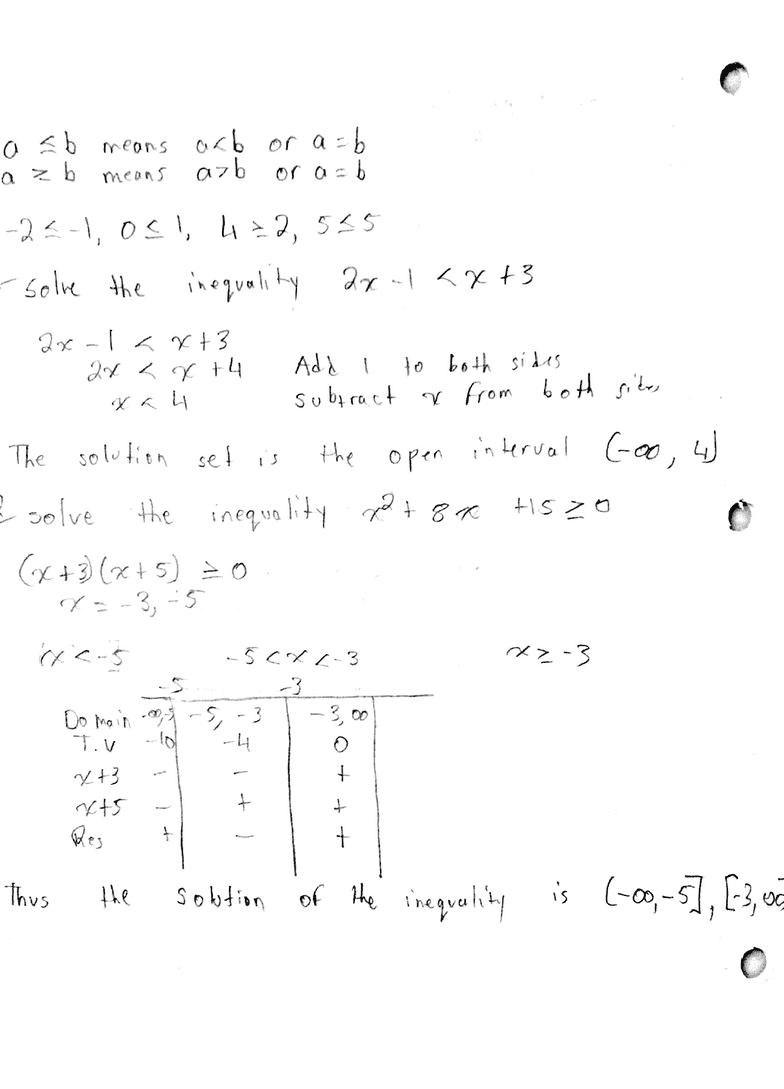 a ≤ b means a<b or a = b
a ≥ b means a>b or a = b
-2 ≤ -1, 0 ≤ 1, 4 ≥ 2, 5 ≤ 5
- solve the inequality 2x - 1 < x + 3
2x - 1 < x + 3
2x < x + 4 Add 1 to both sides
x < 4 subtract x from both sides
The solution set is the open interval (-∞, 4)
solve the inequality x² + 8x + 15 ≥ 0
(x+3)(x+5) ≥ 0
x = -3, -5
x < -5 -5 < x < -3 x ≥ -3
-5 -3
Domain -∞,-5 -5, -3 -3, ∞
T.V -10 -4 0
x+3 - - +
x+5 - + +
Res + - +
Thus the solution of the inequality is (-∞,-5], [-3, ∞